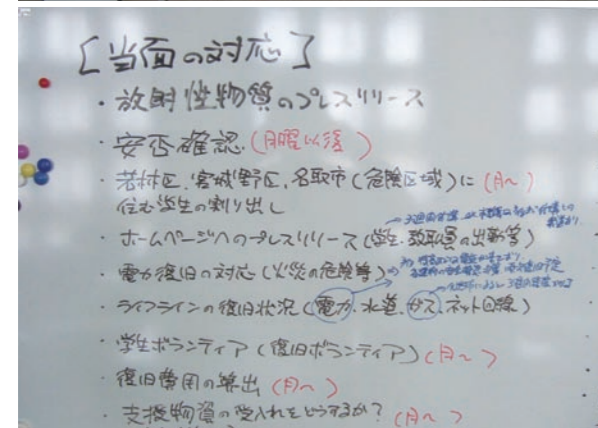 [当面の対応]
・放射性物質のプレスリリース
・安否確認 (月曜以後)
・若林区、宮城野区、名取市(危険区域)に (月〜)
住む学生の割り出し
・ホームページへのプレスリリース(学生、教職員の出勤等)
・電力復旧の対応(火災の危険等)
・ライフラインの復旧状況(電力、水道、ガス、ネット回線)
・学生ボランティア(復旧ボランティア)(月〜)
・復旧費用の算出 (月〜)
・支援物資の受入れをどうするか? (月〜)